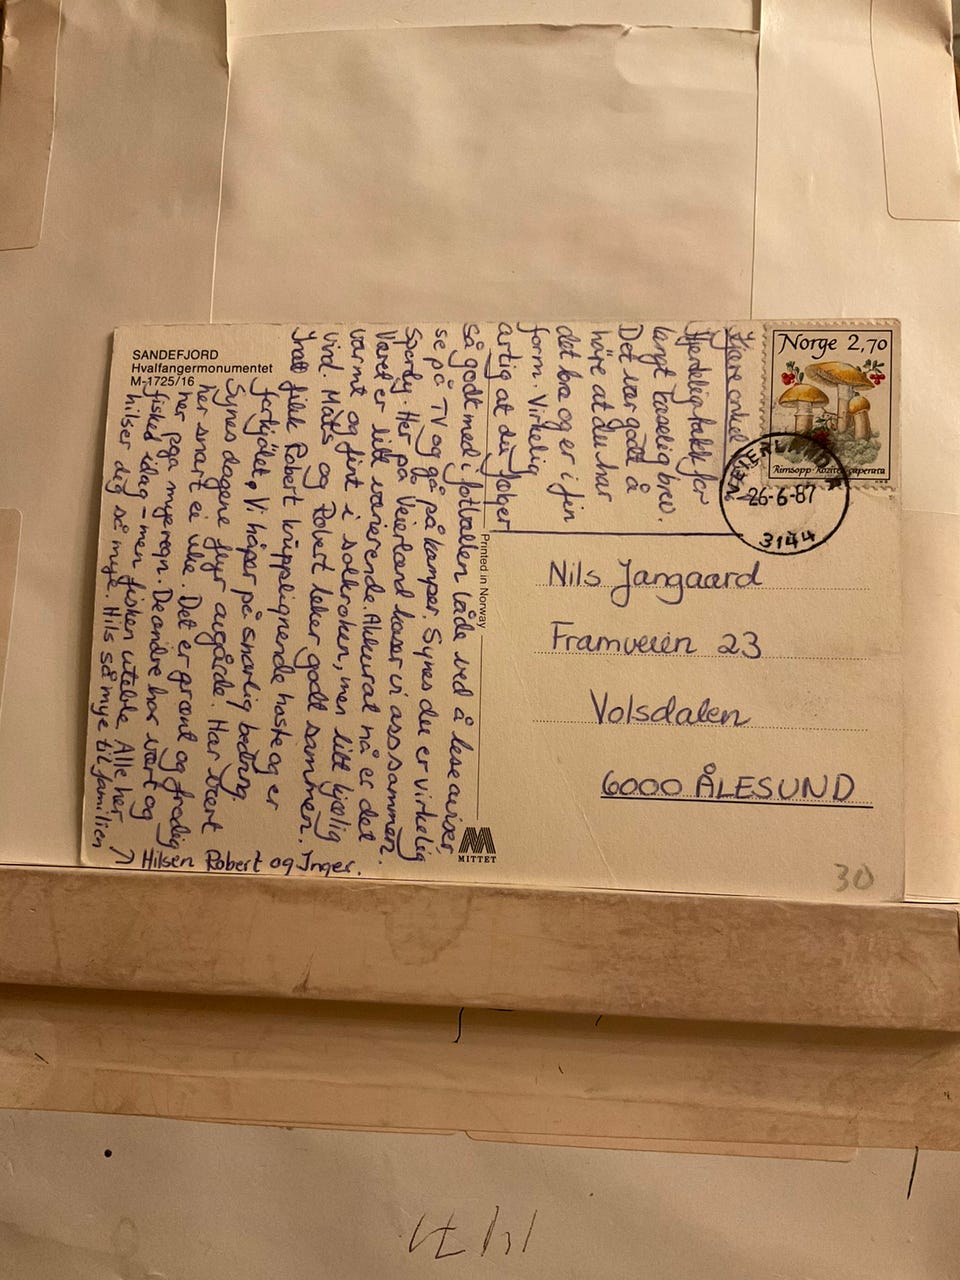 SANDEFJORD
Hvalfangermonumentet
M-1725/16
Kjære onkel
Hjertelig takk for
langt koselig brev.
Det var godt å
höre at du har
det bra og er i fin
form. Virkelig
artig at du følger
så godt med i fotballen både ved å lese aviser,
se på TV og gå på kamper. Synes du er virkelig
Sporty. Her på Veierland koser vi oss sammen.
Været er litt varierende. Akkurat nå er det
varmt og fint i solkroken, men litt kjølig
vind. Mats og Robert leker godt sammen.
I natt fikk Robert krupplignende hoste og er
forkjölet. Vi håper på snarlig bedring.
Synes dagene flyr avgårde. Har vært
her snart ei uke. Det er grønt og frodig
her pga mye regn. De andre har vært og
fisket idag - men fisken uteble. Alle her
hilser deg så mye. Hils så mye til familien
Hilsen Robert og Inger.
Printed in Norway
MITTET
Norge 2,70
Rimsopp · Rozites caperata
VEIERLAND
26-6-87
3144
Nils Jangaard
Framveien 23
Volsdalen
6000 ÅLESUND
30